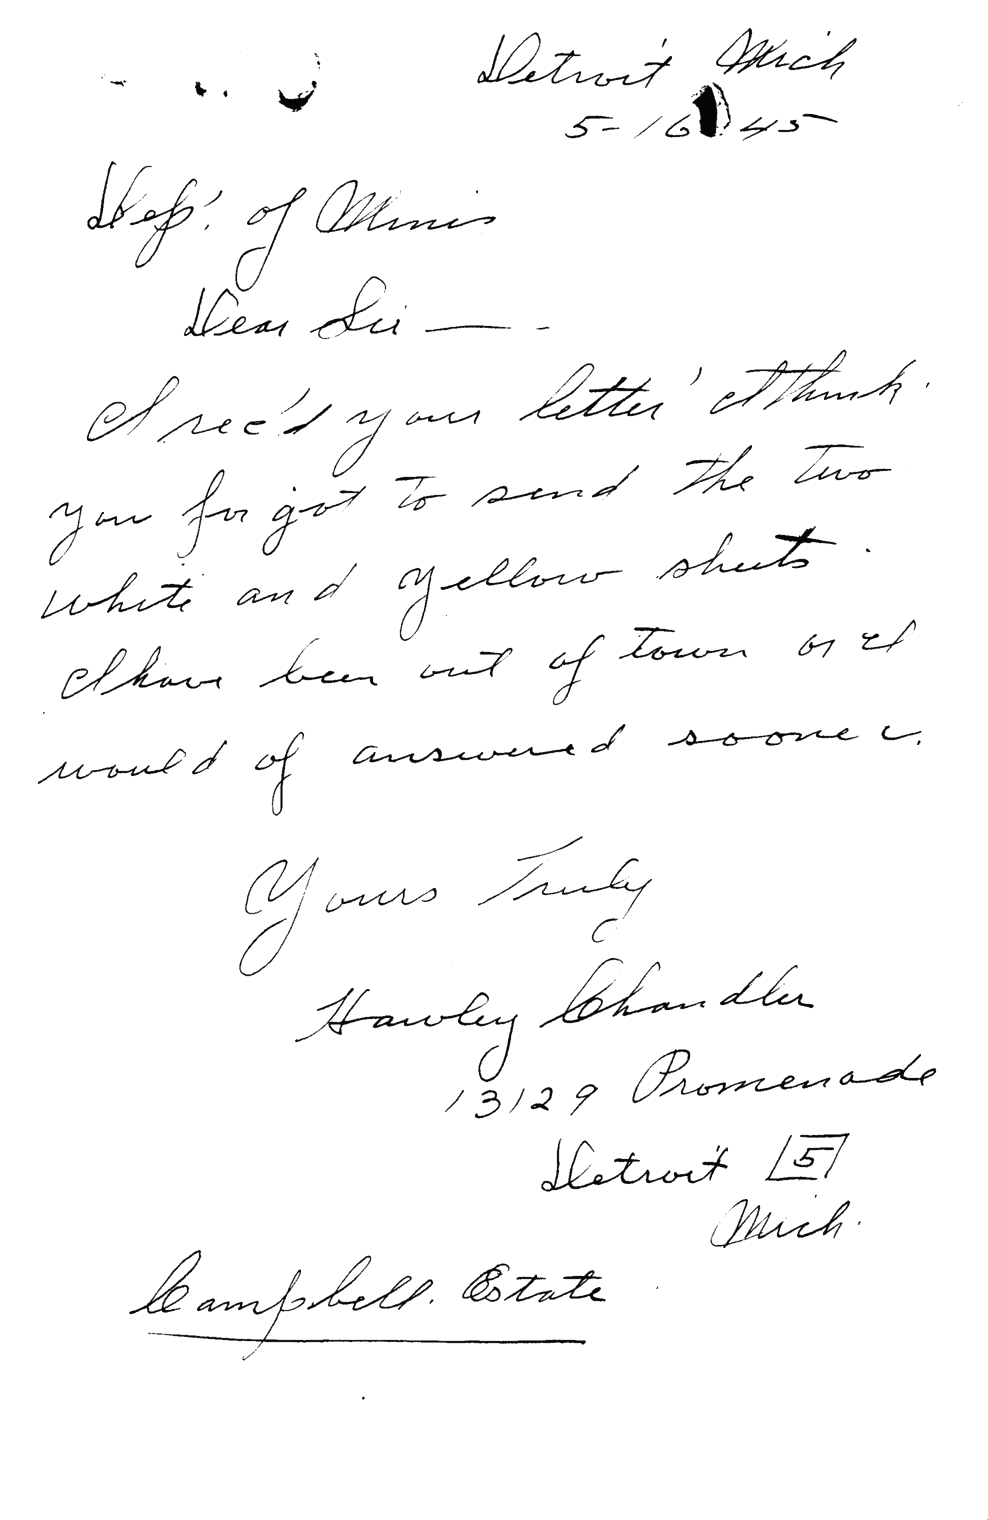 Detroit Mich
5-16 45
Dep'. of Mines
Dear Sir — -
I rec'd your letter I think
you forgot to send the two
white and yellow sheets
I have been out of town or I
would of answered sooner.
Yours Truly
Hawley Chandler
13129 Promenade
Detroit 5
Mich.
Campbell. Estate